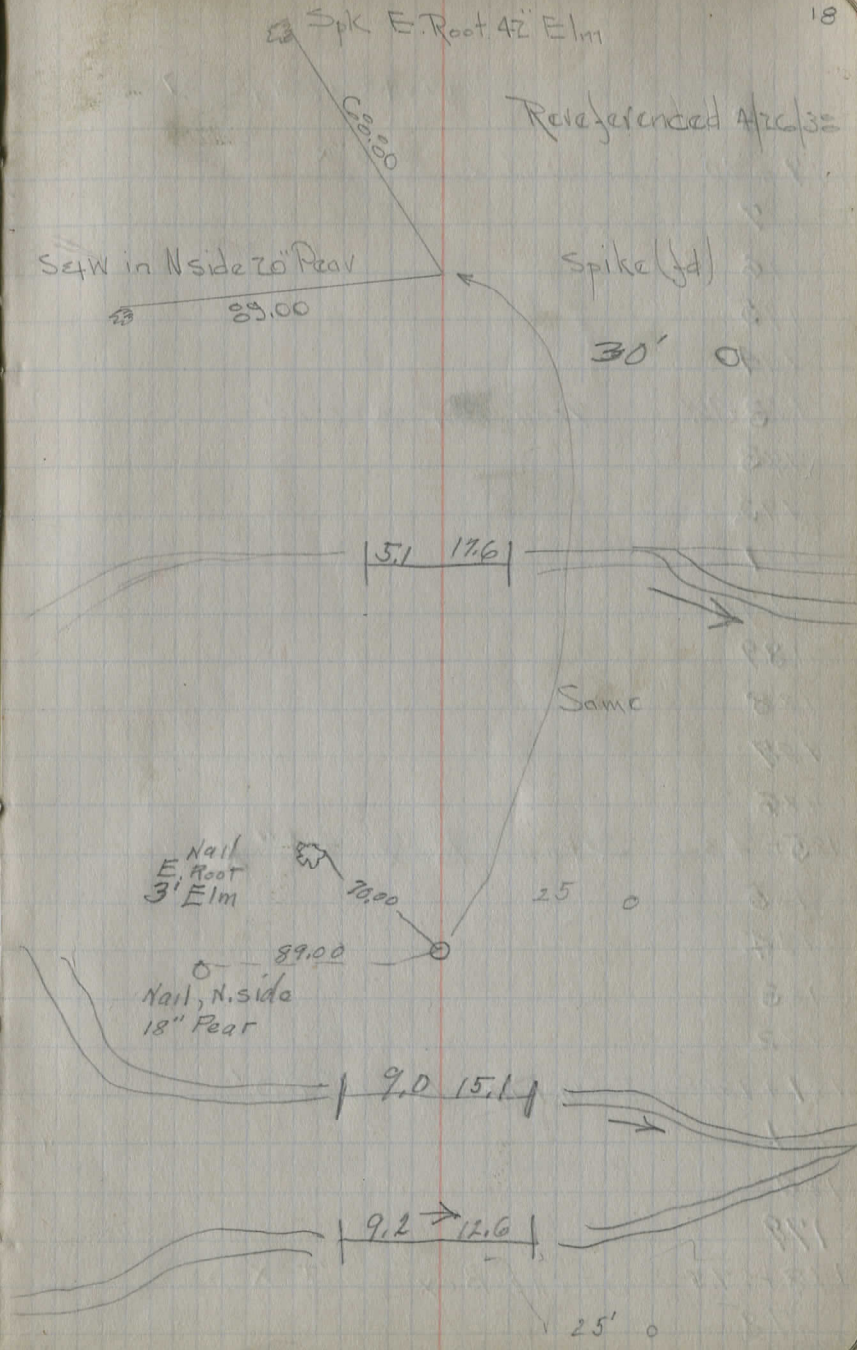 18
Spk E. Root 42" Elm
Rereferenced
S&W in N side 20" Pear
89.00
Spike (fd)
30'
5.1 17.6
Same
Nail
E. Root
3' Elm
70.00
25
89.00
Nail, N. side
18" Pear
9.0 15.1
9.2 12.6
25'